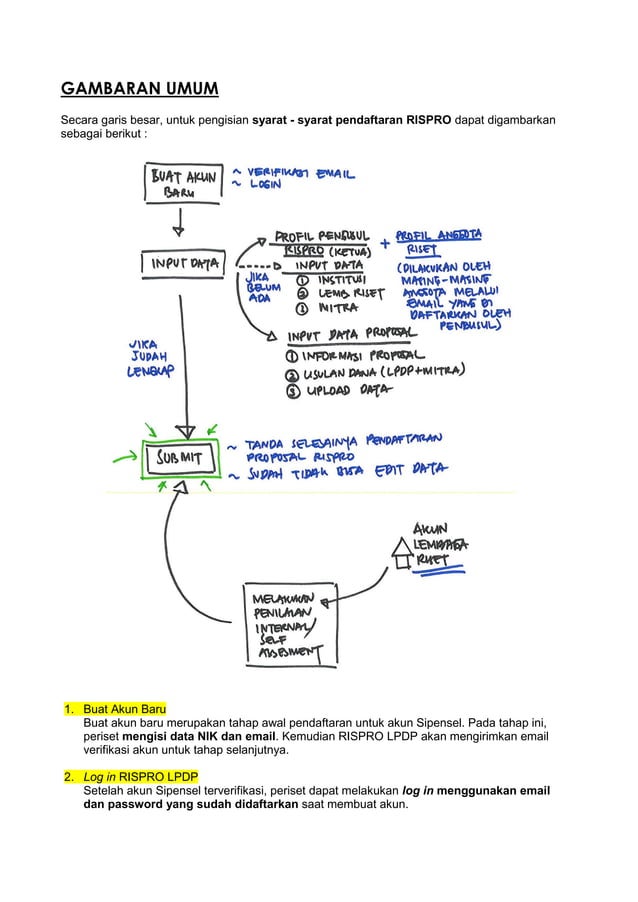 GAMBARAN UMUM
Secara garis besar, untuk pengisian syarat - syarat pendaftaran RISPRO dapat digambarkan
sebagai berikut :
BUAT AKUN
BARU
~ VERIFIKASI EMAIL
~ LOGIN
INPUT DATA
JIKA
BELUM
ADA
PROFIL PENGUSUL
RISPRO (KETUA)
INPUT DATA
① INSTITUSI
② LEMB RISET
③ MITRA
+
PROFIL ANGGOTA
RISET
(DILAKUKAN OLEH
MASING-MASING
ANGGOTA MELALUI
EMAIL YANG DI
DAFTARKAN OLEH
PENGUSUL)
INPUT DATA PROPOSAL
① INFORMASI PROPOSAL
② USULAN DANA (LPDP+MITRA)
③ UPLOAD DATA
JIKA
SUDAH
LENGKAP
SUBMIT
~ TANDA SELESAINYA PENDAFTARAN
PROPOSAL RISPRO
~ SUDAH TIDAK BISA EDIT DATA
AKUN
LEMBAGA
RISET
MELAKUKAN
PENILAIAN
INTERNAL/
SELF
ASSESMENT
1. Buat Akun Baru
Buat akun baru merupakan tahap awal pendaftaran untuk akun Sipensel. Pada tahap ini,
periset mengisi data NIK dan email. Kemudian RISPRO LPDP akan mengirimkan email
verifikasi akun untuk tahap selanjutnya.
2. Log in RISPRO LPDP
Setelah akun Sipensel terverifikasi, periset dapat melakukan log in menggunakan email
dan password yang sudah didaftarkan saat membuat akun.